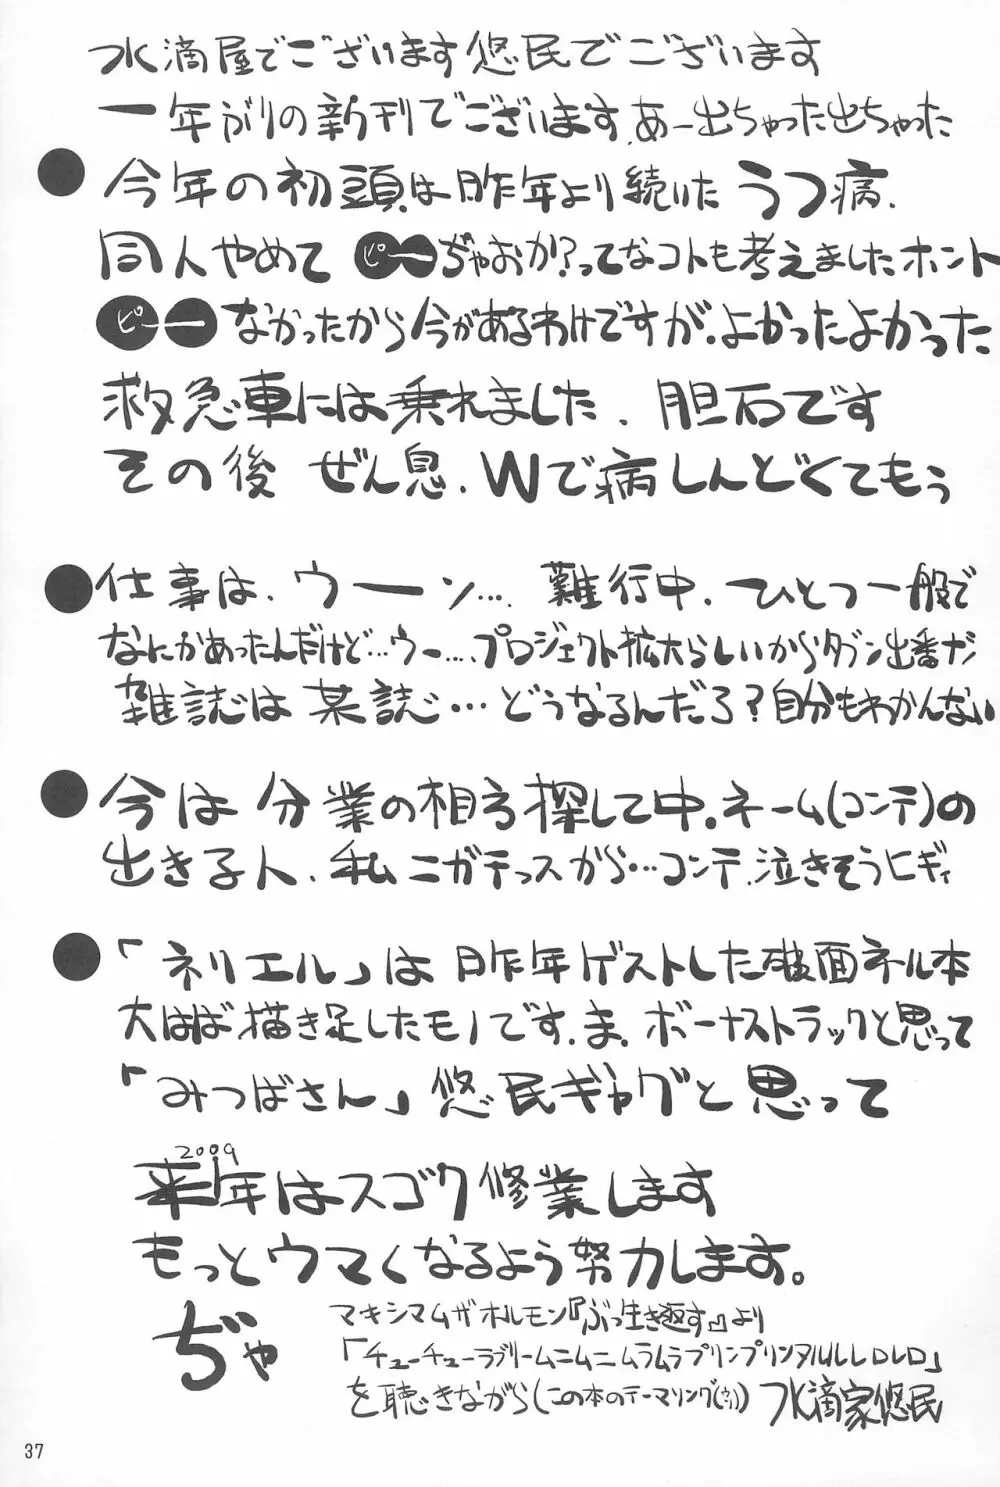 水滴屋でございます悠民でございます
一年ぶりの新刊でございます。あー出ちゃった出ちゃった
●今年の初頭は昨年より続いたうつ病、
同人やめてピーぢゃおか?ってなコトも考えましたホント
ピーなかったから今があるわけですが、よかったよかった
救急車には乗れました、胆石です
その後 ぜん息、Wで病しんどくてもう
●仕事は、ウーン…、難行中、ひとつ一般で
なにかあったんだけど…ウー…、プロジェクト拡大らしいからタブン出番ナシ
雑誌は 某誌…どうなるんだろ?自分もわかんない
●今は 分業の相方探して中。ネーム(コンテ)の
出きる人、私ニガテっスから…コンテ、泣きそうヒギィ
●「ネリエル」は昨年ゲストした破面ネル本
大はば描き足したモノです、ま、ボーナストラックと思って
「みつばさん」悠民ギャグと思って
2009
来年はスゴク修業します
もっとウマくなるよう努力します。
ぢゃ
マキシマムザホルモン『ぶっ生き返す』より
「チューチューラブリームニムニムラムラプリンプリンヌルルルレロレロ」
を聴きながら(この本のテーマソング(ウソ)) 水滴家悠民
37